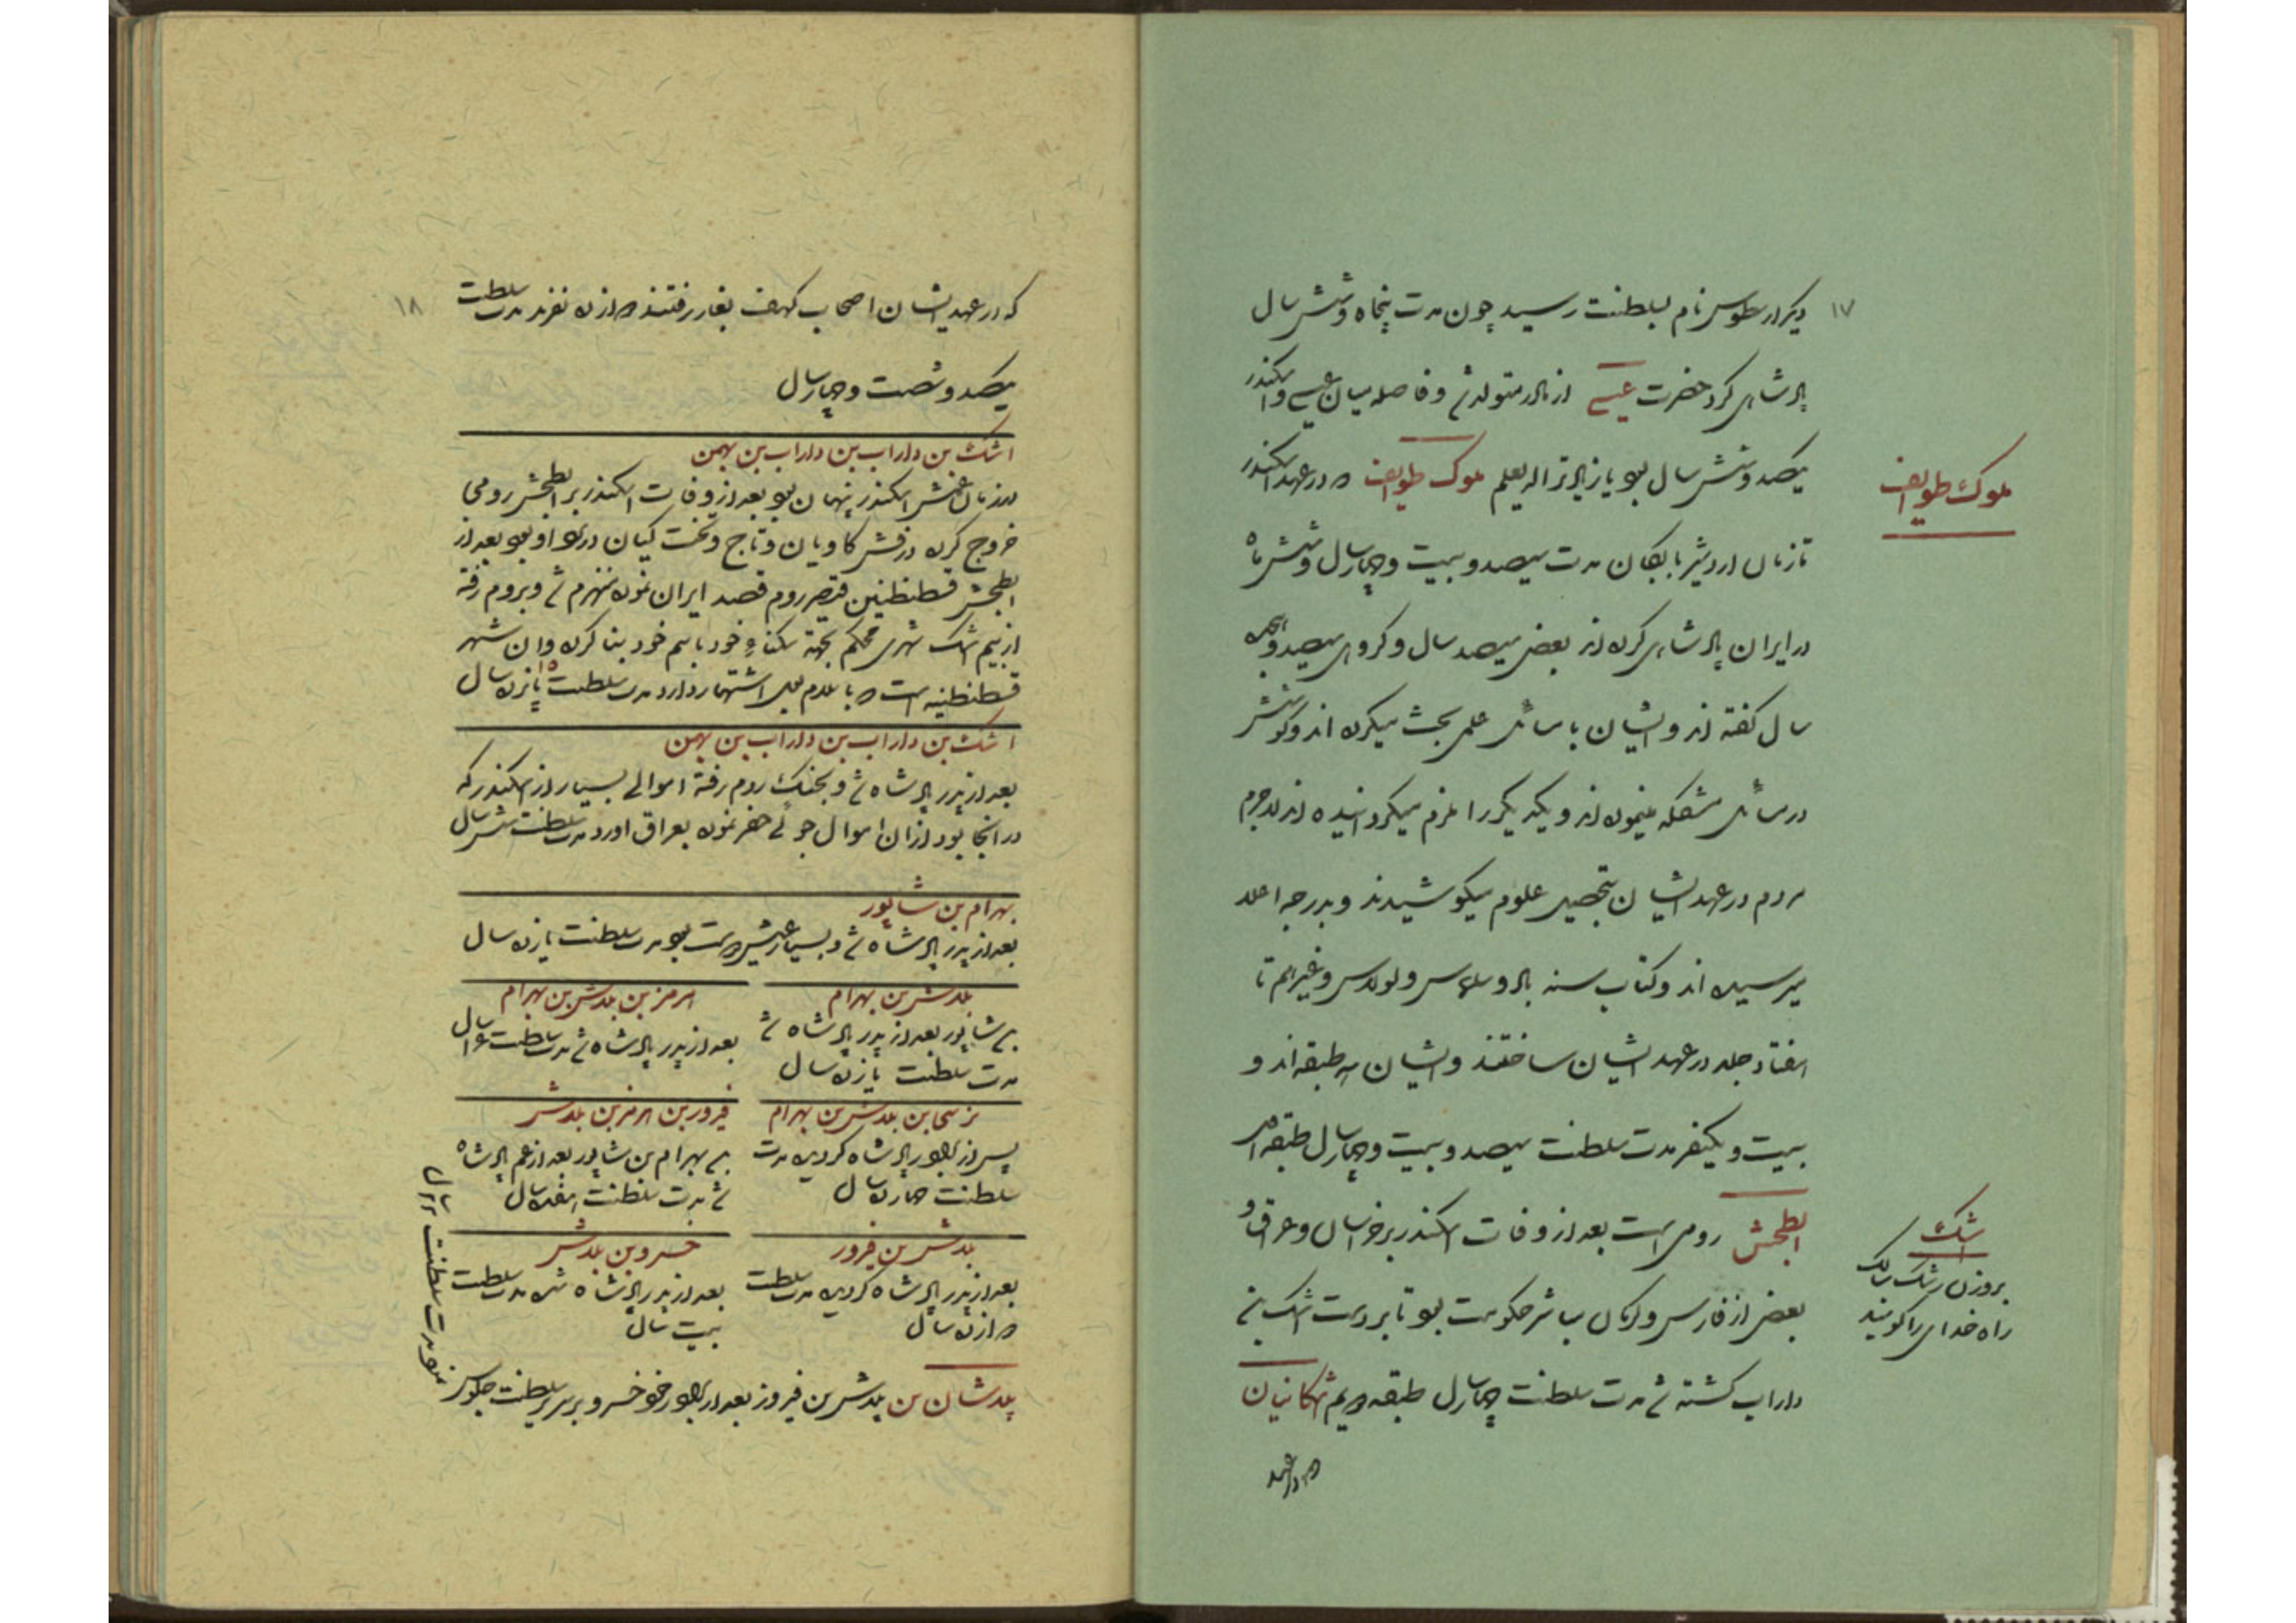 ۱۷
دیکر ارطوس نام بسلطنت رسید چون مدت پنجاه و شش سال
پادشاهی کرد حضرت عیسی از مادر متولد شد و فاصله میان عیسی و اسکندر
سیصد و شش سال بود یا زیاده الله یعلم ملوک طوایف که در عهد اسکندر
ملوک طوایف
تا زمان اردشیر بابکان مدت سیصد و بیست و چهار سال و شش ماه
در ایران پادشاهی کرده اند بعضی سیصد سال و کروهی سیصد و
سال کفته اند و ایشان با مسائل علمی بحث میکرده اند و کوشش
در مسائل مشکله مینموده اند و یکدیکر را ملزم میکردانیده اند لاجرم
مردم در عهد ایشان بتحصیل علوم میکوشیدند و بدرجه اعلا
میرسیده اند و کتاب سندباد و و غیرهم تا
هفتاد جلد در عهد ایشان ساختند و ایشان سه طبقه اند و
بیست و یکنفر مدت سلطنت سیصد و بیست و چهار سال طبقه اول
ابطحش رومی است بعد از وفات اسکندر بر خراسان و عراق و
اشک
بروزن رشک سالک
راه خدای را کویند
بعضی از فارس و کرمان مباشر حکومت بود تا بر دست اشک بن
داراب کشته شد مدت سلطنت چهار سال طبقه دویم اشکانیان
که در عهد
۱۸
که در عهد ایشان اصحاب کهف بغار رفتند دوازده نفرند مدت سلطنت
یکصد و شصت و چهار سال
اشک بن داراب بن داراب بن بهمن
در زمان اسکندر پنهان بود بعد از وفات اسکندر بر ابطحش رومی
خروج کرده درفش کاویان و تاج و تخت کیان در نزد او بود بعد از
ابطحش قسطنطنین قیصر روم قصد ایران نموده منهزم شد و بروم رفته
از بیم اشک شهری محکم بجهة سکنای خود باسم خود بنا کرده و ان شهر
قسطنطنیه است که باسلامبول اشتهار دارد مدت سلطنت پانزده سال ۱۵
اشک بن داراب بن داراب بن بهمن
بعد از پدر پادشاه شد و بجنک روم رفته اموالی بسیار از اسکندر که
در انجا بود از ان اموال جوئی حفر نموده بعراق اورد مدت سلطنت شش سال
بهرام بن شاپور
بعد از پدر پادشاه شد و بسیار عیش دوست بود مدت سلطنت یازده سال
بلاش بن بهرام
بن شاپور بعد از پدر پادشاه شد
مدت سلطنت یازده سال
هرمز بن بلاش بن بهرام
بعد از پدر پادشاه شد مدت سلطنت ۱۶ سال
نرسی بن بلاش بن بهرام
پس از برادر پادشاه کردید مدت
سلطنت چهارده سال
فیروز بن هرمز بن بلاش
بن بهرام بن شاپور بعد از عم پادشاه
شد مدت سلطنت هفده سال
بلاش بن فیروز
بعد از پدر پادشاه کردید مدت سلطنت
دوازده سال
خسرو بن بلاش
بعد از پدر پادشاه شده مدت سلطنت
بیست سال
بلاشان بن بلاش بن فیروز بعد از برادر خود خسرو بر سریر سلطنت جلوس
نمود مدت سلطنت ۲۲ سال